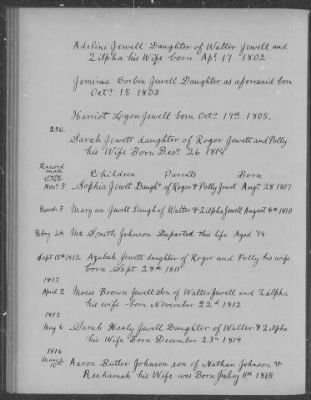 Adeline Jewell Daughter of Walter Jewell and
Zilpha his Wife born Apl. 17 1802
Jemima Corbin Jewell Daughter as aforesaid born
Octr. 15 1803
Harriot Logon Jewell born Oct. 17th. 1805.
256.
Sarah Jewett daughter of Roger Jewett and Polly
his Wife Born Decr. 26 1804
Record
made
Children Parents Born
Novr. 5 Sophia Jewett Daughr. of Roger & Polly Jewett Augt. 28 1807
March 5 Mary an Jewell Daugh of Walter & Zilpha Jewell August 4th 1810
Febry 24 Mr Smith Johnson Departed this life Aged 74
Sept 15th 1812 Azubah Jewett daughter of Roger and Polly his wife
born Sept 28th 1811
1813
April 2 Moses Brown Jewell son of Walter Jewell and Zilpha
his wife born November 22d 1812
1815
May 6 Sarah Healy Jewell Daughter of Walter & Zilpha
his Wife Born December 23rd 1814
1816
March 10th Aaron Butler Johnson son of Nathan Johnson &
his Wife was Born July 11th 1815